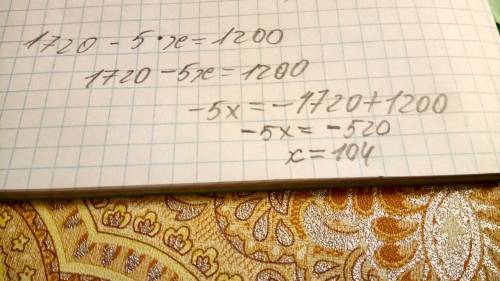 1720 - 5·x = 1200
1720 - 5x = 1200
-5x = -1720 + 1200
-5x = -520
x = 104